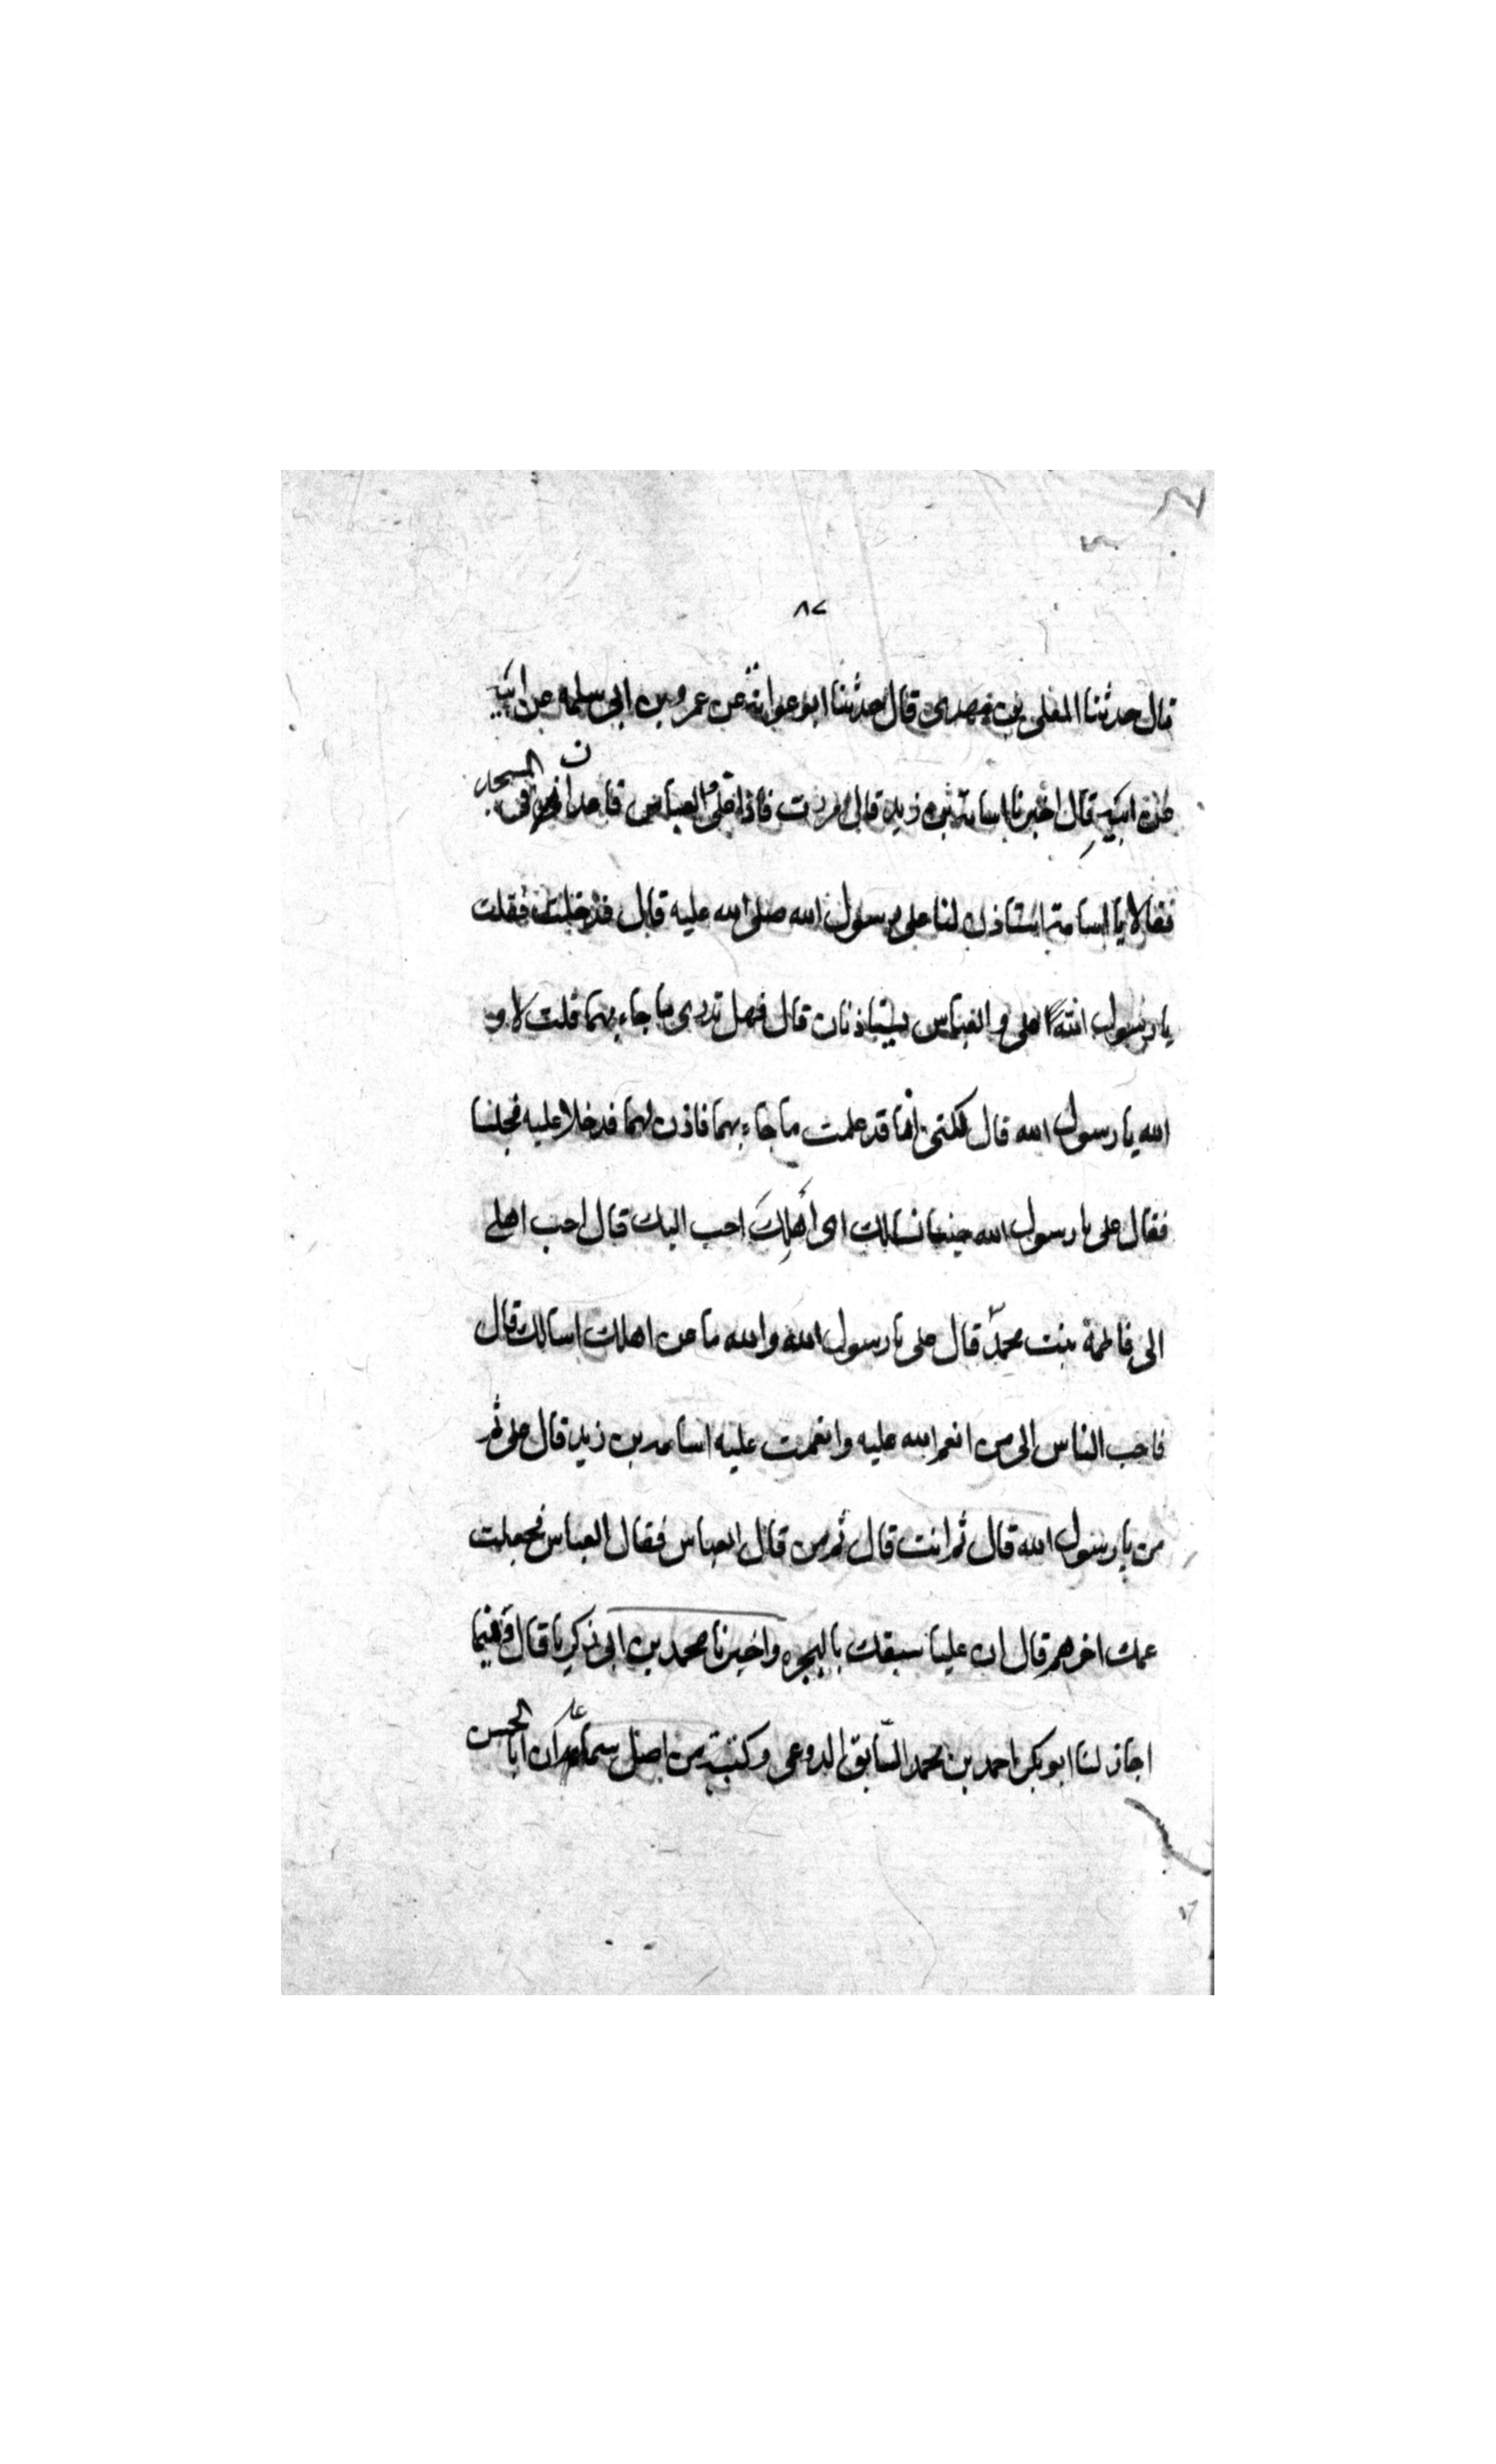 ٨٧
قال حدثنا المعلى بن مهدى قال حدثنا ابو عوانة عن عمرو بن ابى سلمه عن ابيه
عن ابيه قال اخبرنا اسامة بن زيد قال مررت فاذا على والعباس قاعدان فى المسجد
فقالا يا اسامة استاذن لنا على رسول الله صلى الله عليه قال فدخلت فقلت
يا رسول الله على والعباس يستاذنان قال فهل تدرى ما جاء بهما قلت لا و
الله يا رسول الله قال لكنى انا قد علمت ما جاء بهما فاذن لهما فدخلا عليه فجلسا
فقال على يا رسول الله جئنا نسالك اى أهلِكَ احب اليك قال احب اهلى
الى فاطمة بنت محمد قال على يا رسول الله والله ما عن اهلك اسالك قال
فاحب الناس الى من انعم الله عليه وانعمت عليه اسامه بن زيد قال على ثم
من يا رسول الله قال ثم انت قال ثم من قال العباس فقال العباس فجعلت
عمك اخرهم قال ان عليا سبقك بالهجره واخبرنا محمد بن ابى زكريا قال فيما
اجاز لنا ابو بكر احمد بن محمد السابق الدوعى وكتبته من اصل سماعه ان ابا الحسن